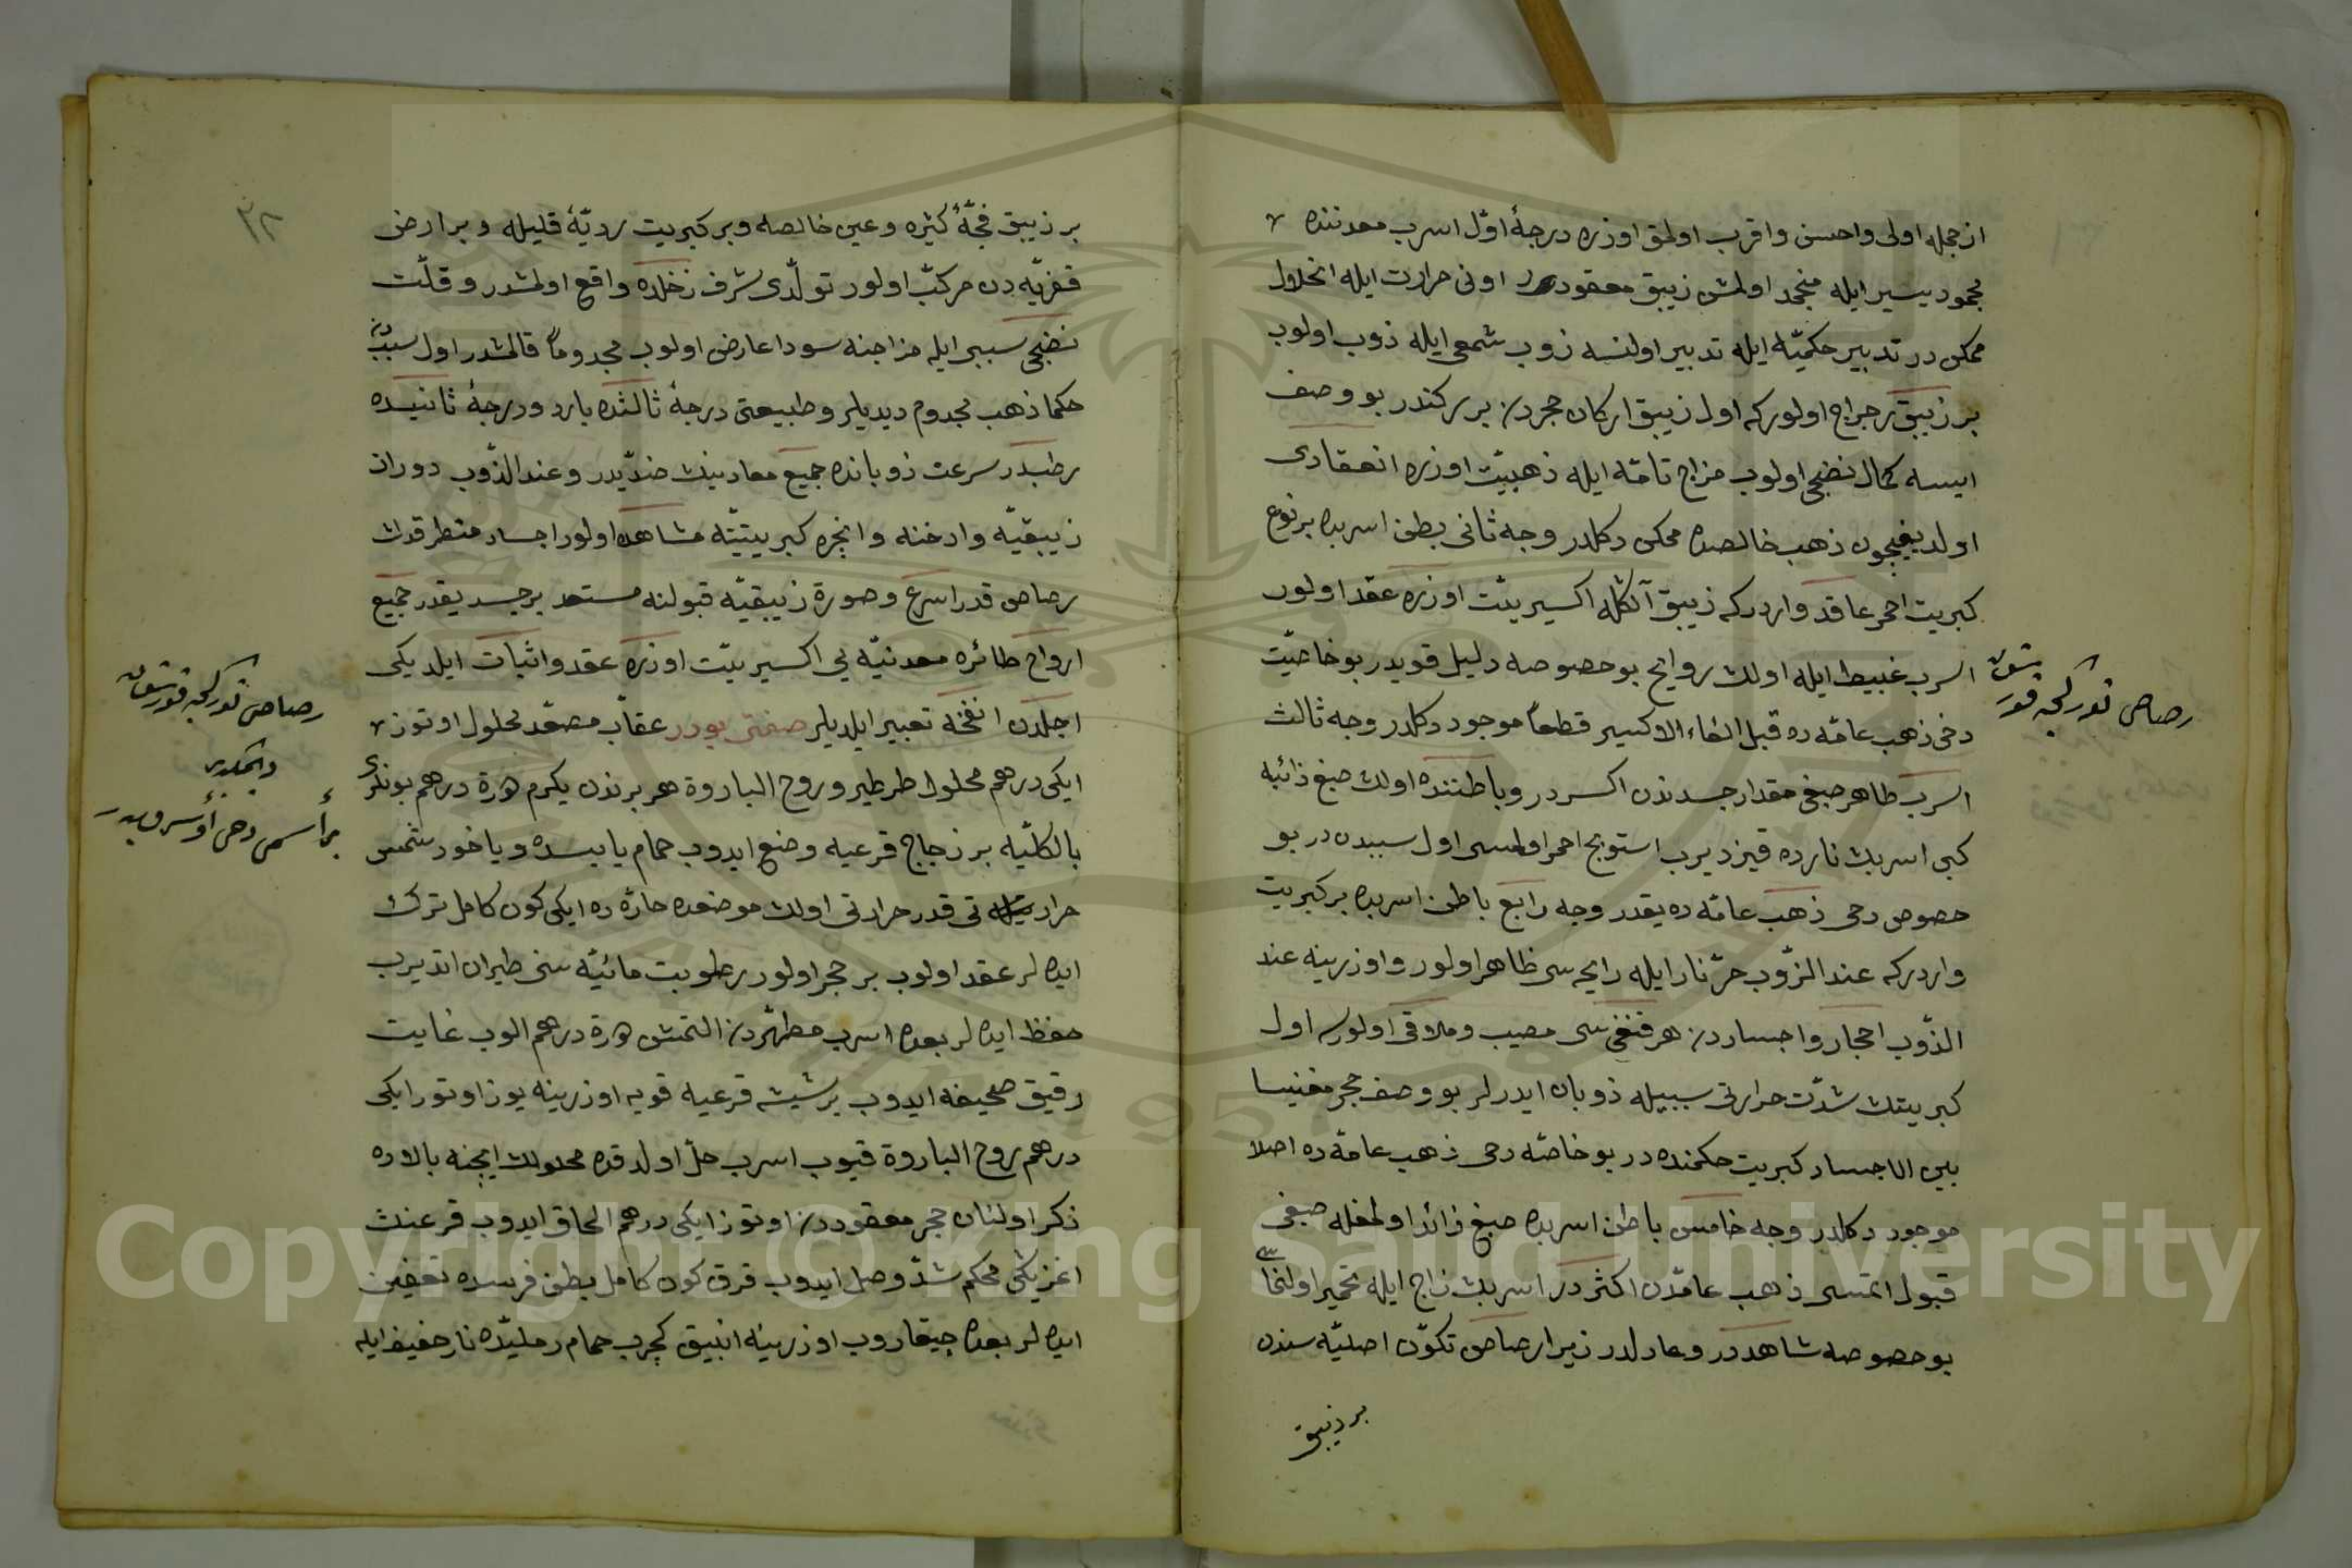 از جمله اولی واحسن واقرب اولمق اوزره درجهٔ اوّل اسرب معدننده
بجمود یسیر ایله منجمد اولمش زیبق معقوددر اونی حرارت ایله انحلال
ممکن در تدبیر حکمیّه ایله تدبیر اولنسه ذوب شمعی ایله ذوب اولوب
بر زیبق رجراج اولور که اول زیبق ارکان حجردن بر رکندر بو وصف
ایسه کمال نضجی اولوب مزاج تامّه ایله ذهبیّت اوزره انعقادی
اولدیغیچون ذهب خالصده ممکن دکلدر وجه ثانی بطن اسربده بر نوع
کبریت احمر عاقد واردر که زیبق آنکله اکسیریّت اوزره عقد اولور
اسرب غبیط ایله اولان روایح بو حصوصه دلیل قویدر بو خاصیّت
رصاص تورکجه قورشون
دخی ذهب عامّه ده قبل القاء الاکسیر قطعاً موجود دکلدر وجه ثالث
اسرب ظاهر صبغی مقدار جسدندن اکسردر وباطننده اولان صبغ ذائبه
کبی اسربك نارده قیزدیرب استوبج احمر اولمسی اول سببدن در بو
حصوص دخی ذهب عامّه ده یقدر وجه رابع باطن اسربده بر کبریت
واردر که عند الذّوب حرّ نار ایله رایحه سی ظاهر اولور واوزرینه عند
الذّوب احجار واجساددن هر قنغی سی مصیب وملاقی اولورسه اول
کبریتك شدّت حرارتی سببیله ذوبان ایدرلر بو وصف حجر مغنیسا
بین الاجساد کبریت حکمنده در بو خاصّه دخی ذهب عامّه ده اصلا
موجود دکلدر وجه خامس باطن اسربده صبغ زائد اولمغله صبغی
قبول اتمسی ذهب عامّدن اکثر در اسربك زاج ایله تخمیر اولنماسی
بو حصوصه شاهددر وعادلدر زیرا رصاص تکوّن اصلیّه سندن
بر زیبق
٣٢
بر زیبق فجّهٔ کثیره وعین خالصه وبر کبریت ردیّهٔ قلیله وبر ارض
قفریّه دن مرکّب اولور تولّدی شرف زحلده واقع اولمشدر وقلّت
نضجی سببی ایله مزاجنه سودا عارض اولوب مجدوماً قالمشدر اول سببدن
حکما ذهب مجدوم دیدیلر وطبیعتی درجهٔ ثالثده بارد ودرجهٔ ثانیده
رطبدر سرعت ذوبانده جمیع معادنینك ضدّیدر وعند الذّوب دوران
زیبقیّه وادخنه وابخره کبریتیّه مشاهده اولور اجساد متطرقه‌نك
رصاص قدر اسرع وصورة زیبقیّه قبولنه مستعد بر جسد یقدر جمیع
ارواح طائره معدنیّه یی اکسیریّت اوزره عقد واثبات ایلدیکی
رصاص تورکجه قورشون
دیمکدر
بر اسمی دخی اُسرُبدر
اجلدن انفخه تعبیر ایلدیلر صفتی بودر عقاب مصعّد محلول اوتوز
ایکی درهم محلول طرطیر وروح البارود هر برندن یکرم درهم بونلری
بالکلّیه بر زجاج قرعیه وضع ایدوب حمام یابسده ویاخود شمس
حرارتی قدر حرارتی اولان موضعده حارّه ده ایکی کون کامل ترك
ایده لر عقد اولوب بر حجر اولور رطوبت مائیّه سنی طیران اتدیرب
حفظ ایده لر بعده اسرب مطهّردن التمش درهم الوب غایت
رقیق صحیفه ایدوب بر شیشه قرعیه قویه اوزرینه یوز اوتوز ایکی
درهم روح البارود قیوب اسرب حلّ اولدقده محلولك ایچنه بالاده
ذکر اولنان حجر معقوددن اوتوز ایکی درهم الحاق ایدوب قرعنك
اغزیکی محکم شدّ وصل ایدوب قرق کون کامل بطن فرسده تعفین
ایده لر بعده چیقاروب اوزرینه انبیق کچرب حمام رملیّده نار خفیف ایله
Copyright © King Saud University
1957